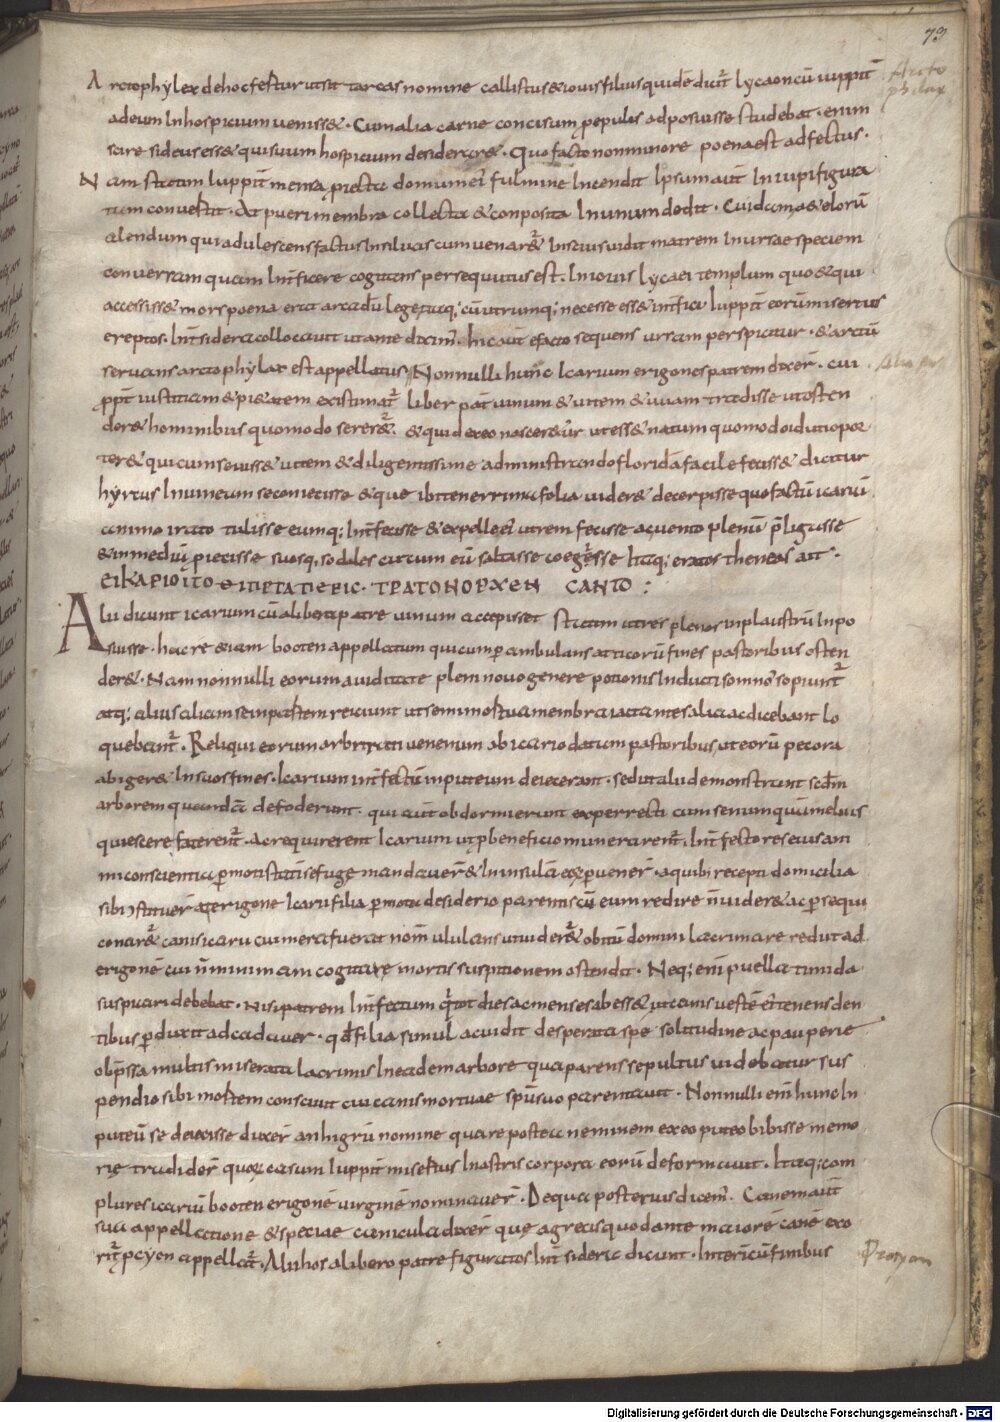 73
Arctophylax de hoc fertur ut sit tarcas nomine callistus & iouis filius quidē dicit͛ lycaon cū iuppit̄
ad eum In hospicium uenisse&. Cum alia carne concisum p̨ epulis adposuisse studebat. enim
scire si deus ess& qui suum hospicium desiderar&. Quo facto non minore poena est adfectus.
Nam statim Iuppit̄ mensa p̨iecta domum ei fulmine Incendit Ipsum aūt In lupi figura
tum conuertit. At pueri membra collecta & conposita In unum dedit. Cuidam a&elorū
alendum qui adulescens factus In siluis cum uenar&͛ Inscius uidit matrem In ursae speciem
conuersam quam Int̄ficere cogitans persequutus est. In iouis lycaei templum quo & qui
accessiss& mors poena erat arcadū lege Itaq; cū utrumq; necesse ess& int̄fici Iuppit̄ eorū misertus
ereptos. Int̄ sidera collocauit ut ante diximꝰ. hic aūt e facto sequens ursam perspicitur. & arctū
seruans arctophylax est appellatus Nonnulli hunc Icarium erigones patrem dixer̄. cui
ꝓpt̄ iustitiam & pi&atem existimat͛ liber pat̄ uinum & uitem & uuam tradisse ut osten
der& hominibus quomodo serer&͛. & quid ex eo nascer&ur ut ess& natum quomodo id uti opor
ter& qui cum seuiss& uitem & diligentissime administrando floridā facile fecisse& dicitur
hyrcus In uineam se coniecisse & que ibi tenerrima folia uider& decerpisse quo factū icariū
animo irato tulisse eumq; Int̄fecisse & ex pelle ei utrem fecisse ac uento plenū p̄ligasse
& in mediū p̨iecisse suosq; sodales circum eū saltasse coegisse Itaq; eratos theneas ait.
ΕΙΚΑΡΙΟΙΤΟ ΘΙΤΙΡΤΑΤΙΕΡΙC. ΤΡΑΤΟΝΟΡΧΕΝ CΑΝΤΟ :
Alii dicunt icarium cū a libero patre uinum accepisset Statim utres plenos in plaustrū Inpo
suisse. hac re & iam booten appellatum qui cum perambulans atticorū fines pastoribus osten
der&. Nam nonnulli eorum auiditate pleni nouo genere potionis Inducti somno sopiunt͛
atq; alius aliam se in partem reiciunt ut semimortua membra iactantes alia ac dicebant lo
quebant͛. Reliqui eorum arbitrati uenenum ab icario datum pastoribus ut eorū pecora
abiger& In suos fines. Icarium int̄fectū in puteum deiecerant. sed ut alii demonstrant scd̄m
arborem quandā defoderunt. qui aūt obdormierunt experrecti cum se nunquā melius
quiescere faterent͛. ac requirerent Icarium ut ꝓ beneficio munerarent͛. Int̄fectores eius ani
mi conscientia ꝑmoti statī se fuge mandauer̄ & In insulā eoꝝ peruener̄. a quibꝰ recepti domicilia
sibi ɔstituer̄ at erigone Icari filia ꝑmota desiderio parentis cū eum redire n̄ uider& ac ꝑsequi
conar&͛ canis icarii cui mera fuerat nom̄ ululans ut uider&͛ obitū domini lacrimare redut ad
erigonē cui n̄ minimam cogitare mortis suspitionem ostendit. Neq; eni puella timida
suspicari debebat. nisi patrem Int̄fectum q͛ tot dies ac menses abess& ut canis uestē ei tenens den
tibus ꝑduxit ad cadauer. qd̄ filia simul ac uidit desperata spe solitudine ac pauperie
obp̄ssa multis miserata lacrimis In eadem arbore qua parens sepultus uidebatur sus
pendio sibi mortem consciuit cui canis mortuae spū suo parentauit. Nonnulli eni hunc In
puteū se deiecisse dixer̄ anhigrū nomine quare postea neminem ex eo puteo bibisse memo
rię tradider̄ quoꝝ casum Iuppit̄ misertus In astris corpora eorū deformauit. Itaq; com
plures icariū booten erigonē uirginē nominauer̄. De qua posterius dicemꝰ. Canem aūt
sua appellatione & speciae canicula dixer̄ quę a grecis quod ante maiorē canē exo
rit͛ ꝓcyon appellat͛. Alii hos a libero patre figuratos Int̄ sidera dicunt. Interī cū finibus
Arcto
philax
Procyon
Digitalisierung gefördert durch die Deutsche Forschungsgemeinschaft - DFG